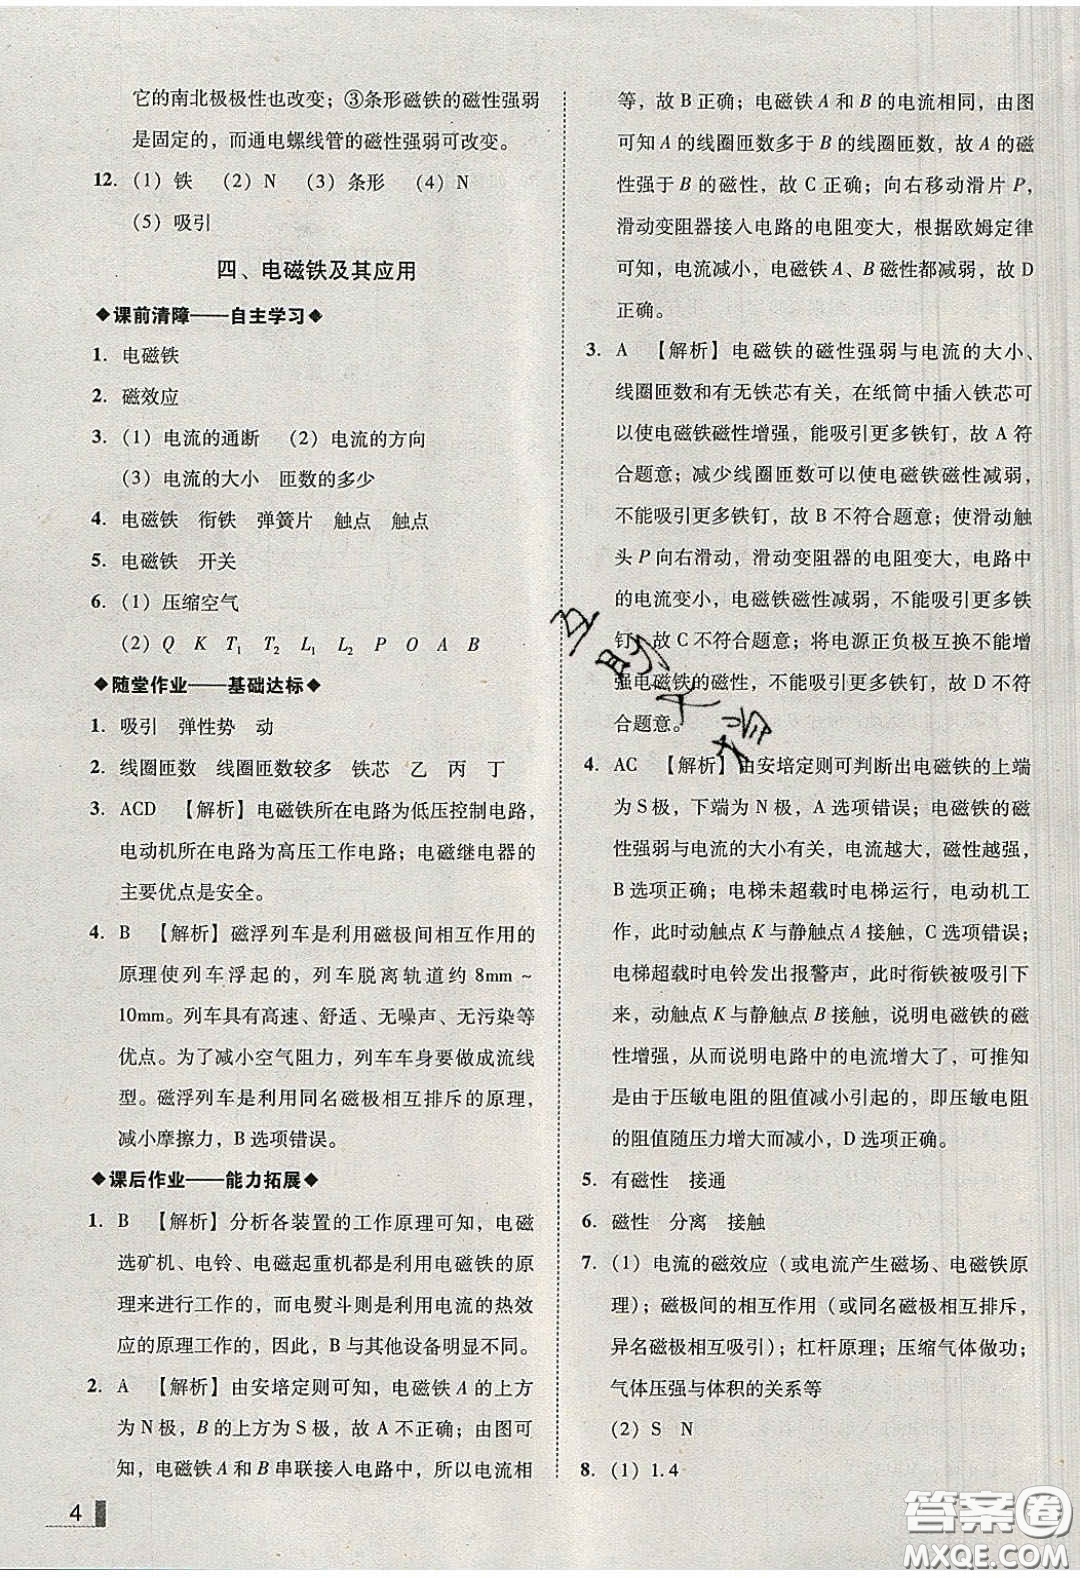 它的南北极极性也改变；③条形磁铁的磁性强弱
是固定的，而通电螺线管的磁性强弱可改变。
12. (1) 铁 (2) N (3) 条形 (4) N
(5) 吸引
四、电磁铁及其应用
◆课前清障——自主学习◆
1. 电磁铁
2. 磁效应
3. (1) 电流的通断 (2) 电流的方向
(3) 电流的大小 匝数的多少
4. 电磁铁 衔铁 弹簧片 触点 触点
5. 电磁铁 开关
6. (1) 压缩空气
(2) Q K T₁ T₂ L₁ L₂ P O A B
◆随堂作业——基础达标◆
1. 吸引 弹性势 动
2. 线圈匝数 线圈匝数较多 铁芯 乙 丙 丁
3. ACD 【解析】电磁铁所在电路为低压控制电路，
电动机所在电路为高压工作电路；电磁继电器的
主要优点是安全。
4. B 【解析】磁浮列车是利用磁极间相互作用的
原理使列车浮起的，列车脱离轨道约 8mm ~
10mm。列车具有高速、舒适、无噪声、无污染等
优点。为了减小空气阻力，列车车身要做成流线
型。磁浮列车是利用同名磁极相互排斥的原理，
减小摩擦力，B 选项错误。
◆课后作业——能力拓展◆
1. B 【解析】分析各装置的工作原理可知，电磁
选矿机、电铃、电磁起重机都是利用电磁铁的原
理来进行工作的，而电熨斗则是利用电流的热效
应的原理工作的，因此，B 与其他设备明显不同。
2. A 【解析】由安培定则可知，电磁铁 A 的上方
为 N 极，B 的上方为 S 极，故 A 不正确；由图可
知，电磁铁 A 和 B 串联接入电路中，所以电流相
4
等，故 B 正确；电磁铁 A 和 B 的电流相同，由图
可知 A 的线圈匝数多于 B 的线圈匝数，故 A 的磁
性强于 B 的磁性，故 C 正确；向右移动滑片 P，
滑动变阻器接入电路的电阻变大，根据欧姆定律
可知，电流减小，电磁铁 A、B 磁性都减弱，故 D
正确。
3. A 【解析】电磁铁的磁性强弱与电流的大小、
线圈匝数和有无铁芯有关，在纸筒中插入铁芯可
以使电磁铁磁性增强，能吸引更多铁钉，故 A 符
合题意；减少线圈匝数可以使电磁铁磁性减弱，
不能吸引更多铁钉，故 B 不符合题意；使滑动触
头 P 向右滑动，滑动变阻器的电阻变大，电路中
的电流变小，电磁铁磁性减弱，不能吸引更多铁
钉，故 C 不符合题意；将电源正负极互换不能增
强电磁铁的磁性，不能吸引更多铁钉，故 D 不符
合题意。
4. AC 【解析】由安培定则可判断出电磁铁的上端
为 S 极，下端为 N 极，A 选项错误；电磁铁的磁
性强弱与电流的大小有关，电流越大，磁性越强，
B 选项正确；电梯未超载时电梯运行，电动机工
作，此时动触点 K 与静触点 A 接触，C 选项错误；
电梯超载时电铃发出报警声，此时衔铁被吸引下
来，动触点 K 与静触点 B 接触，说明电磁铁的磁
性增强，从而说明电路中的电流增大了，可推知
是由于压敏电阻的阻值减小引起的，即压敏电阻
的阻值随压力增大而减小，D 选项正确。
5. 有磁性 接通
6. 磁性 分离 接触
7. (1) 电流的磁效应（或电流产生磁场、电磁铁原
理）；磁极间的相互作用（或同名磁极相互排斥，
异名磁极相互吸引）；杠杆原理；压缩气体做功；
气体压强与体积的关系等
(2) S N
8. (1) 1.4
答案圈
MXQE.COM